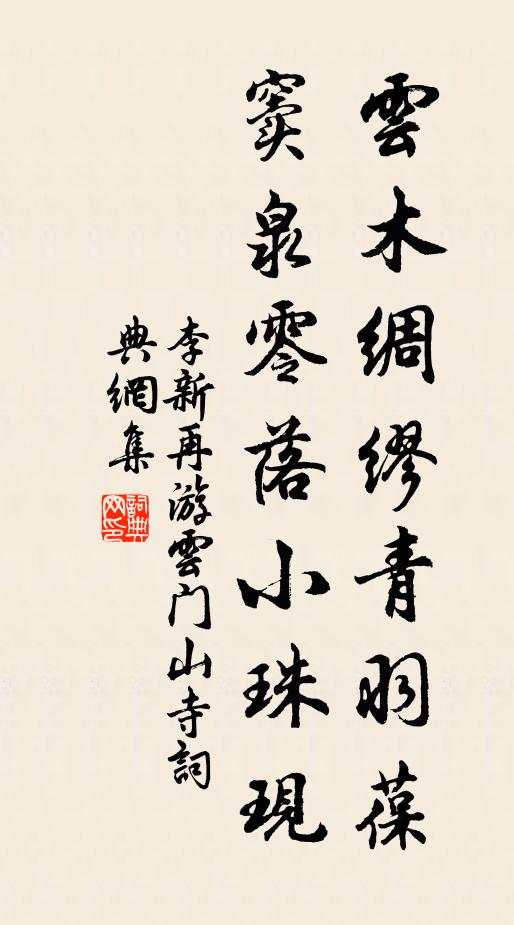 雲木綢缪青羽葆
窦泉零落小珠現
李新再游雲门山寺詞
典網集
詞典網印